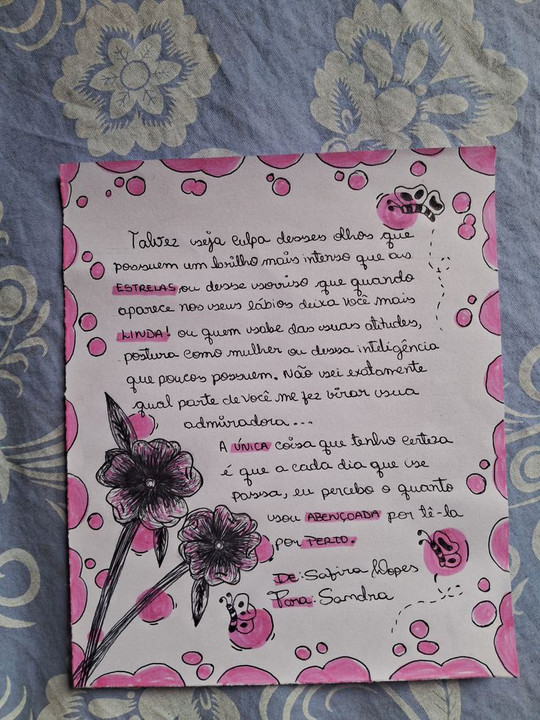 Talvez seja culpa desses olhos que
possuem um brilho mais intenso que as
ESTRELAS, ou desse sorriso que quando
aparece nos seus lábios deixa você mais
LINDA! ou quem sabe das suas atitudes,
postura como mulher ou dessa inteligência
que poucos possuem. Não sei exatamente
qual parte de você me fez virar sua
admiradora...
A ÚNICA coisa que tenho certeza
é que a cada dia que se
passa, eu percebo o quanto
sou ABENÇOADA por tê-la
por PERTO.
De: Safira Lopes
Para: Sandra